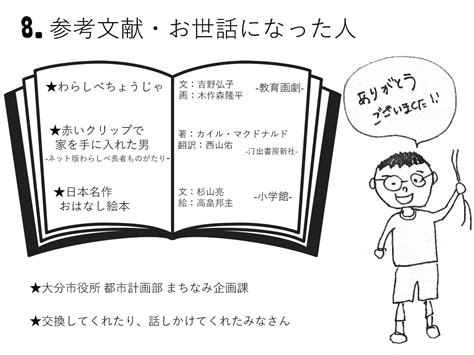 8. 参考文献・お世話になった人
★わらしべちょうじゃ
文：吉野弘子
画：木作森隆平
-教育画劇-
★赤いクリップで
家を手に入れた男
-ネット版わらしべ長者ものがたり-
著：カイル・マクドナルド
翻訳：西山佑
-汀出書房新社-
★日本名作
おはなし絵本
文：杉山亮
絵：高畠邦主
-小学館-
ありがとう
ございました!!
★大分市役所 都市計画部 まちなみ企画課
★交換してくれたり、話しかけてくれたみなさん